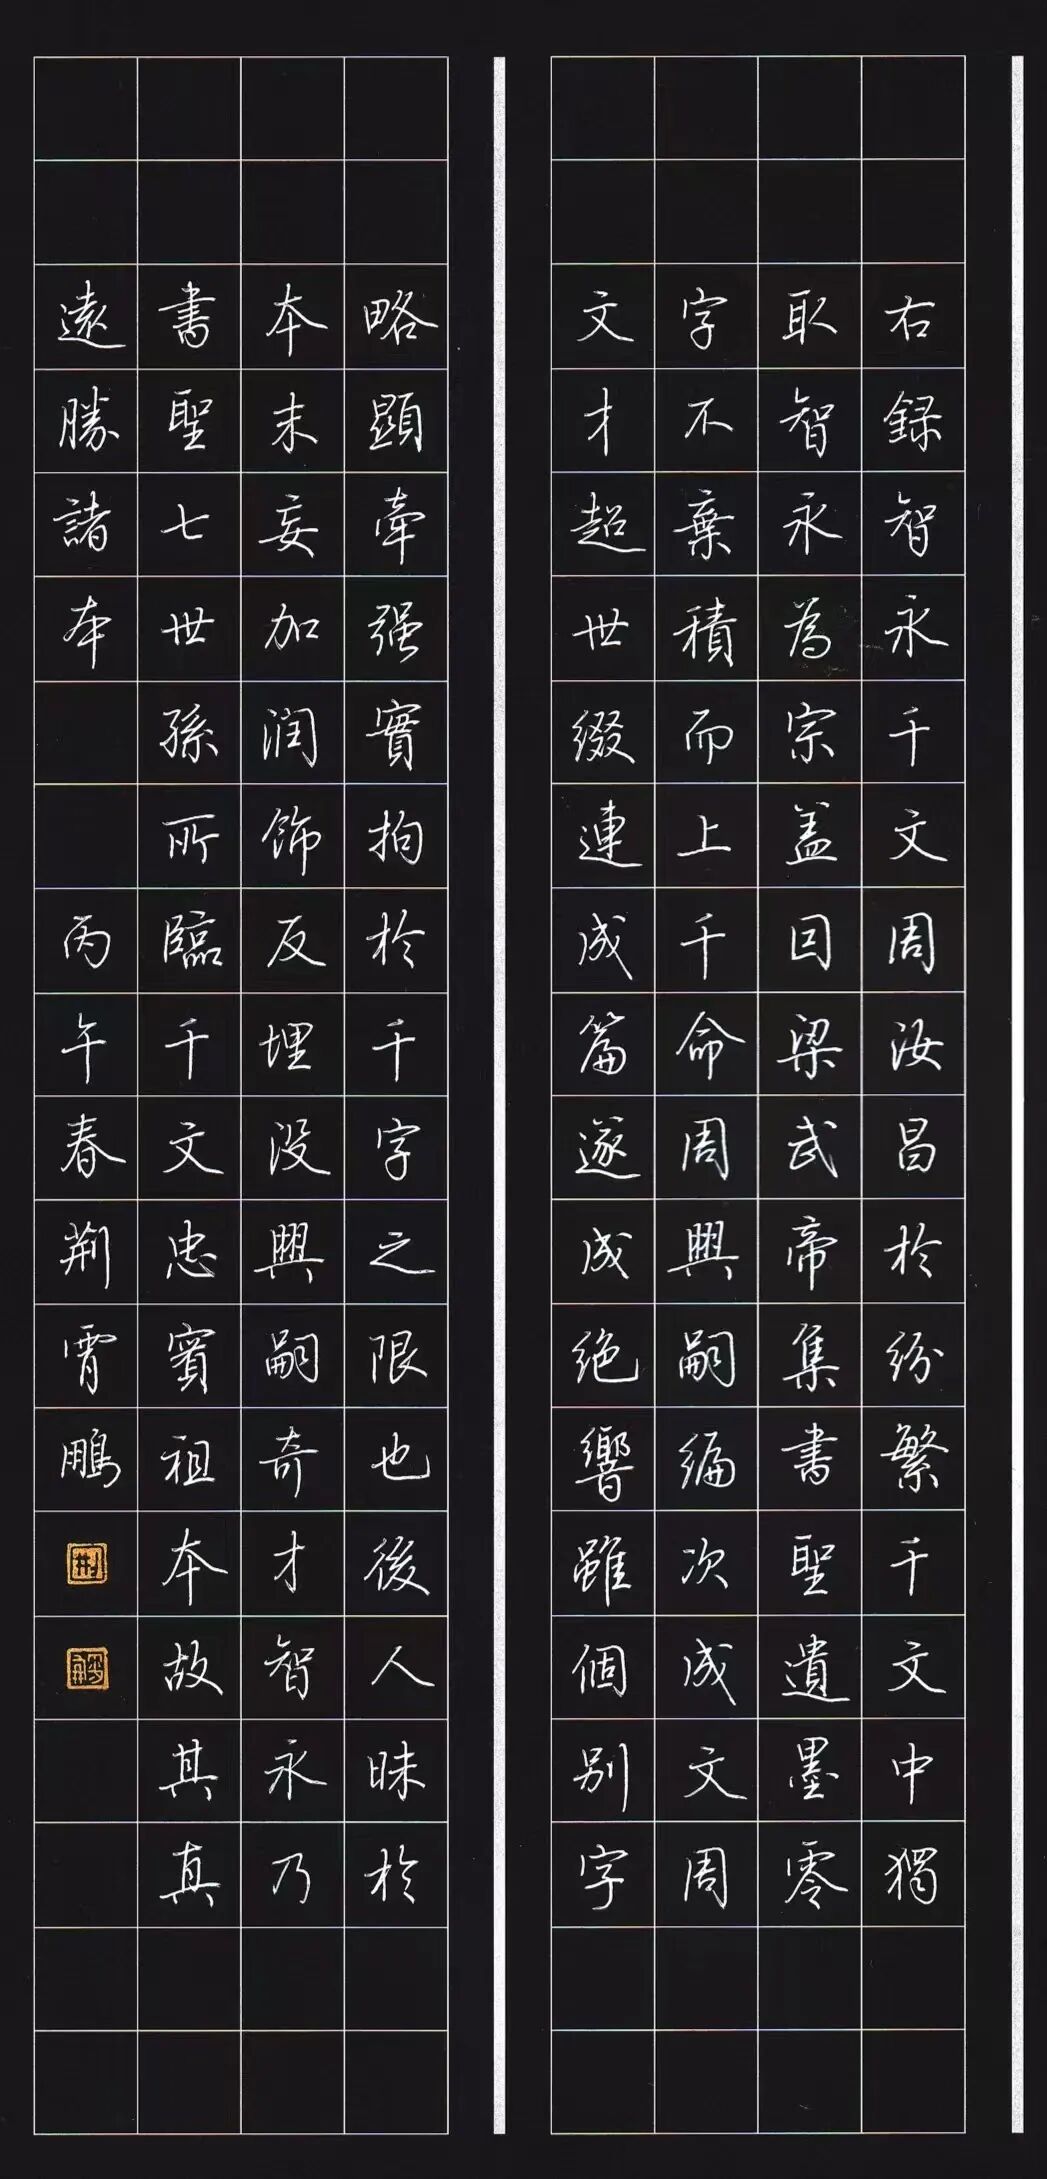 右錄智永千文周汝昌於紛繁千文中獨
取智永為宗蓋因梁武帝集書聖遺墨零
字不棄積而上千命周興嗣編次成文周
文才超世綴連成篇遂成絕響雖個別字
略顯牽强實拘於千字之限也後人昧於
本末妄加润飾反埋沒興嗣奇才智永乃
書聖七世孫所臨千文忠實祖本故其真
遠勝諸本 丙午春荊霄鵬